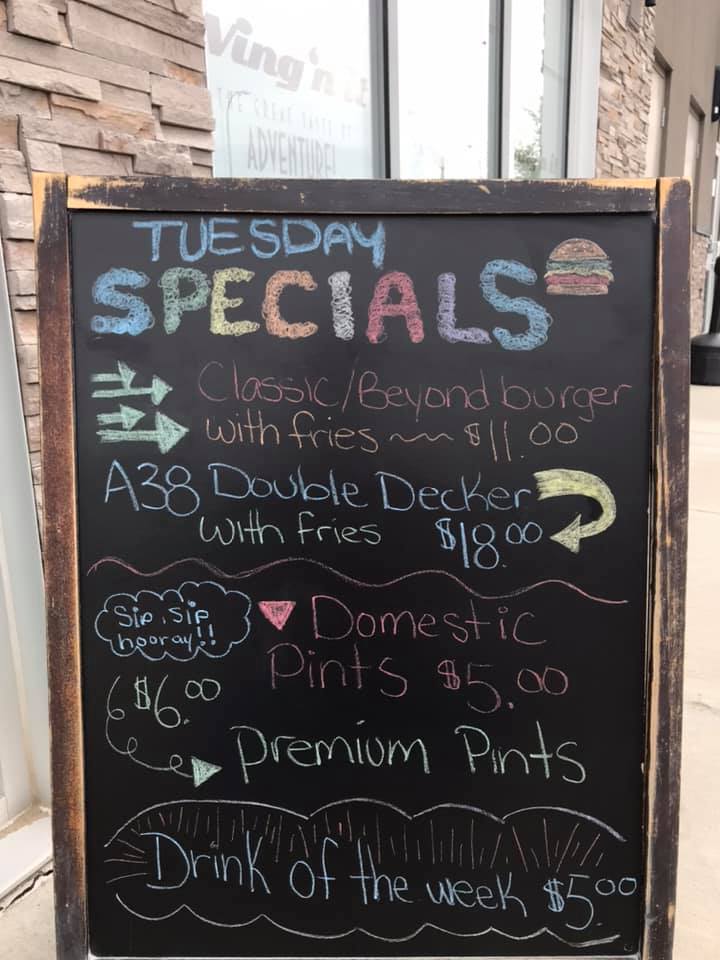 Wing'n it
THE GREAT TASTE OF
ADVENTURE!
TUESDAY
SPECIALS
Classic/Beyond burger
with fries $11.00
A38 Double Decker
with fries $18.00
Sip, Sip
hooray!!
Domestic
Pints $5.00
$6.00
Premium Pints
Drink of the week $5.00